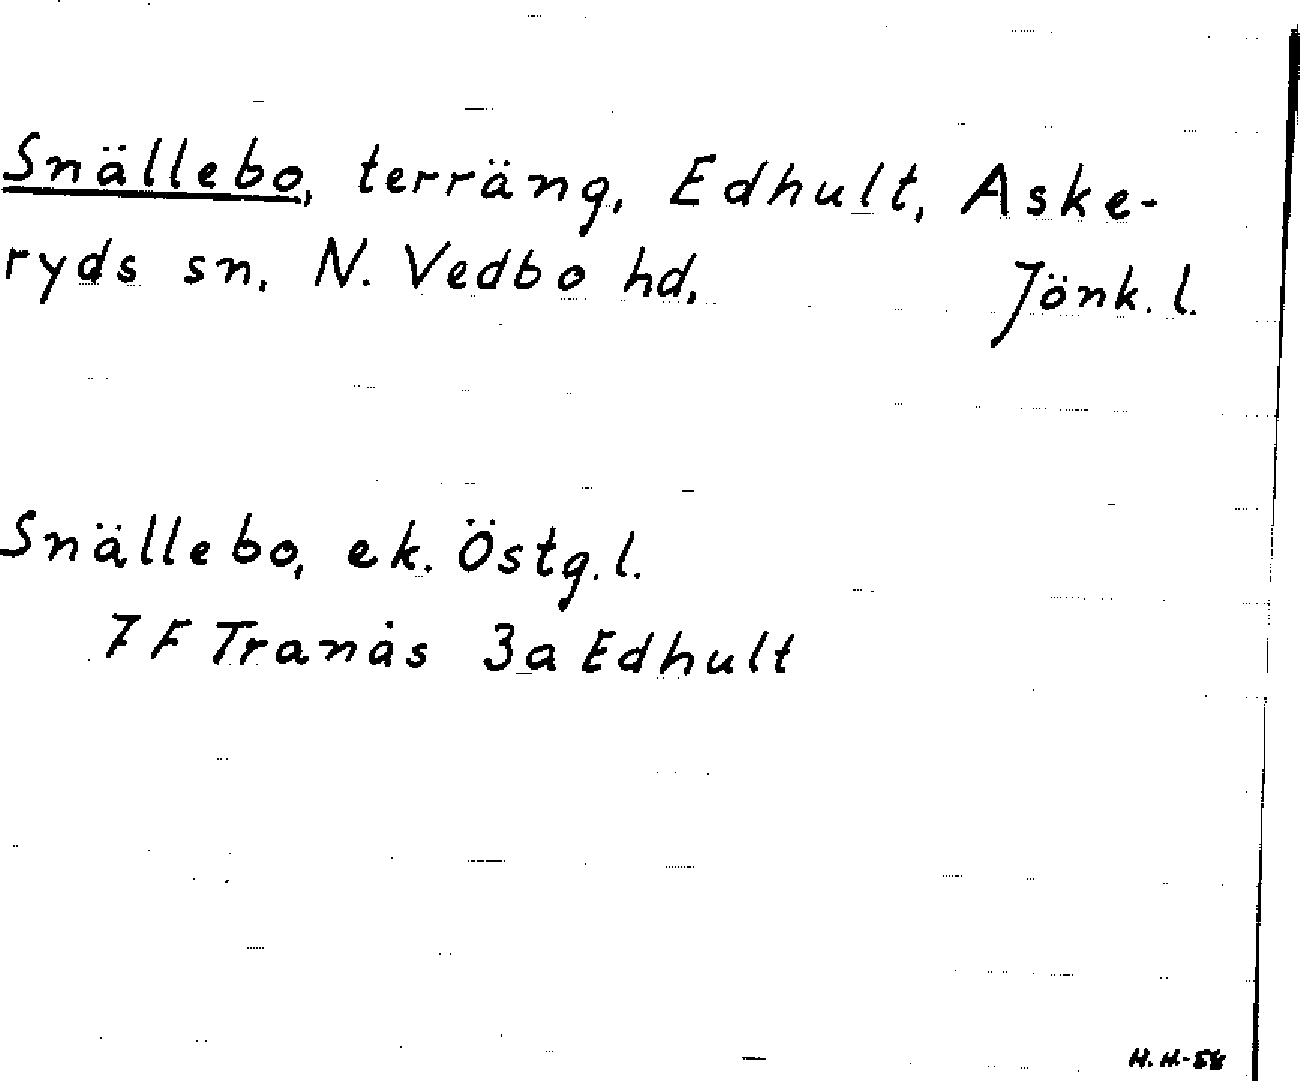 Snällebo, terräng, Edhult, Aske-
ryds sn. N. Vedbo hd. Jönk. l.
Snällebo, ek. Östg. l.
7 F Tranås 3a Edhult
H. H-58